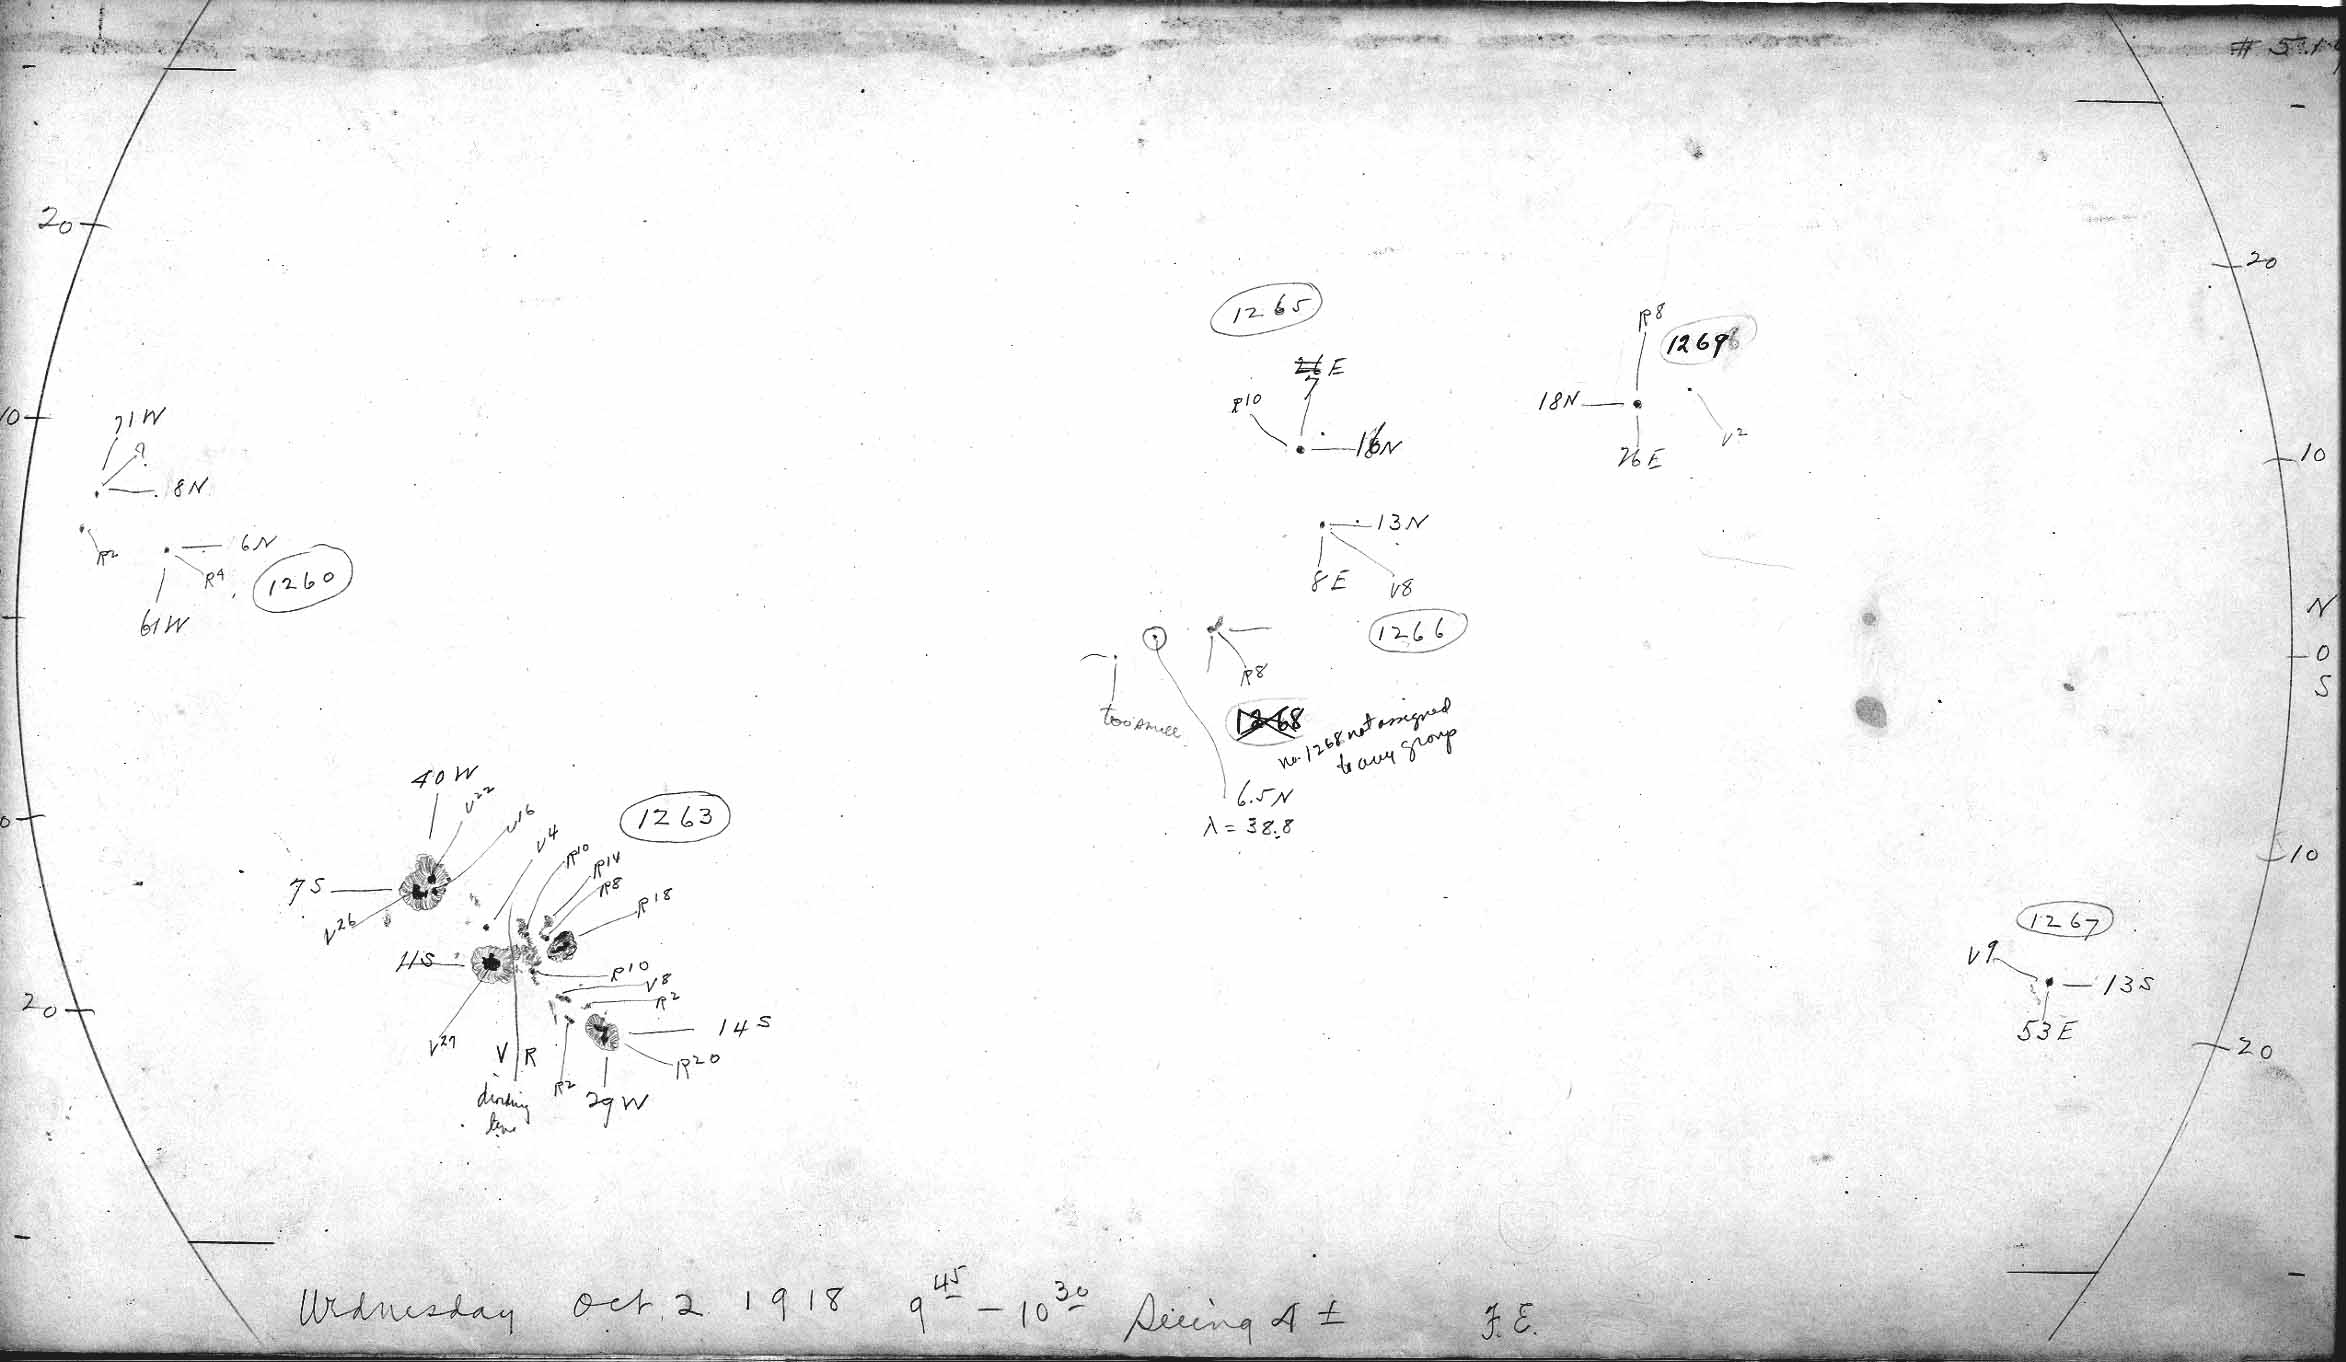 20
10
71W
8N
R2
6N
R4
1260
61W
1265
E
7
R10
N
R8
18N
26E
V2
13N
8E
V8
1266
R8
too small
1268
no. 1268 not assigned
to any group
6.5N
λ = 38.8
40W
V22
V16
V4
1263
R10
R14
R8
R18
7S
V26
11S
R10
V8
R2
14S
V27
V R
R20
R2
29W
dividing
line
0
20
20
10
N
0
S
10
1267
V9
13S
53E
20
Wednesday Oct. 2 1918 9 45 – 10 30 Seeing 4 ± F.E.